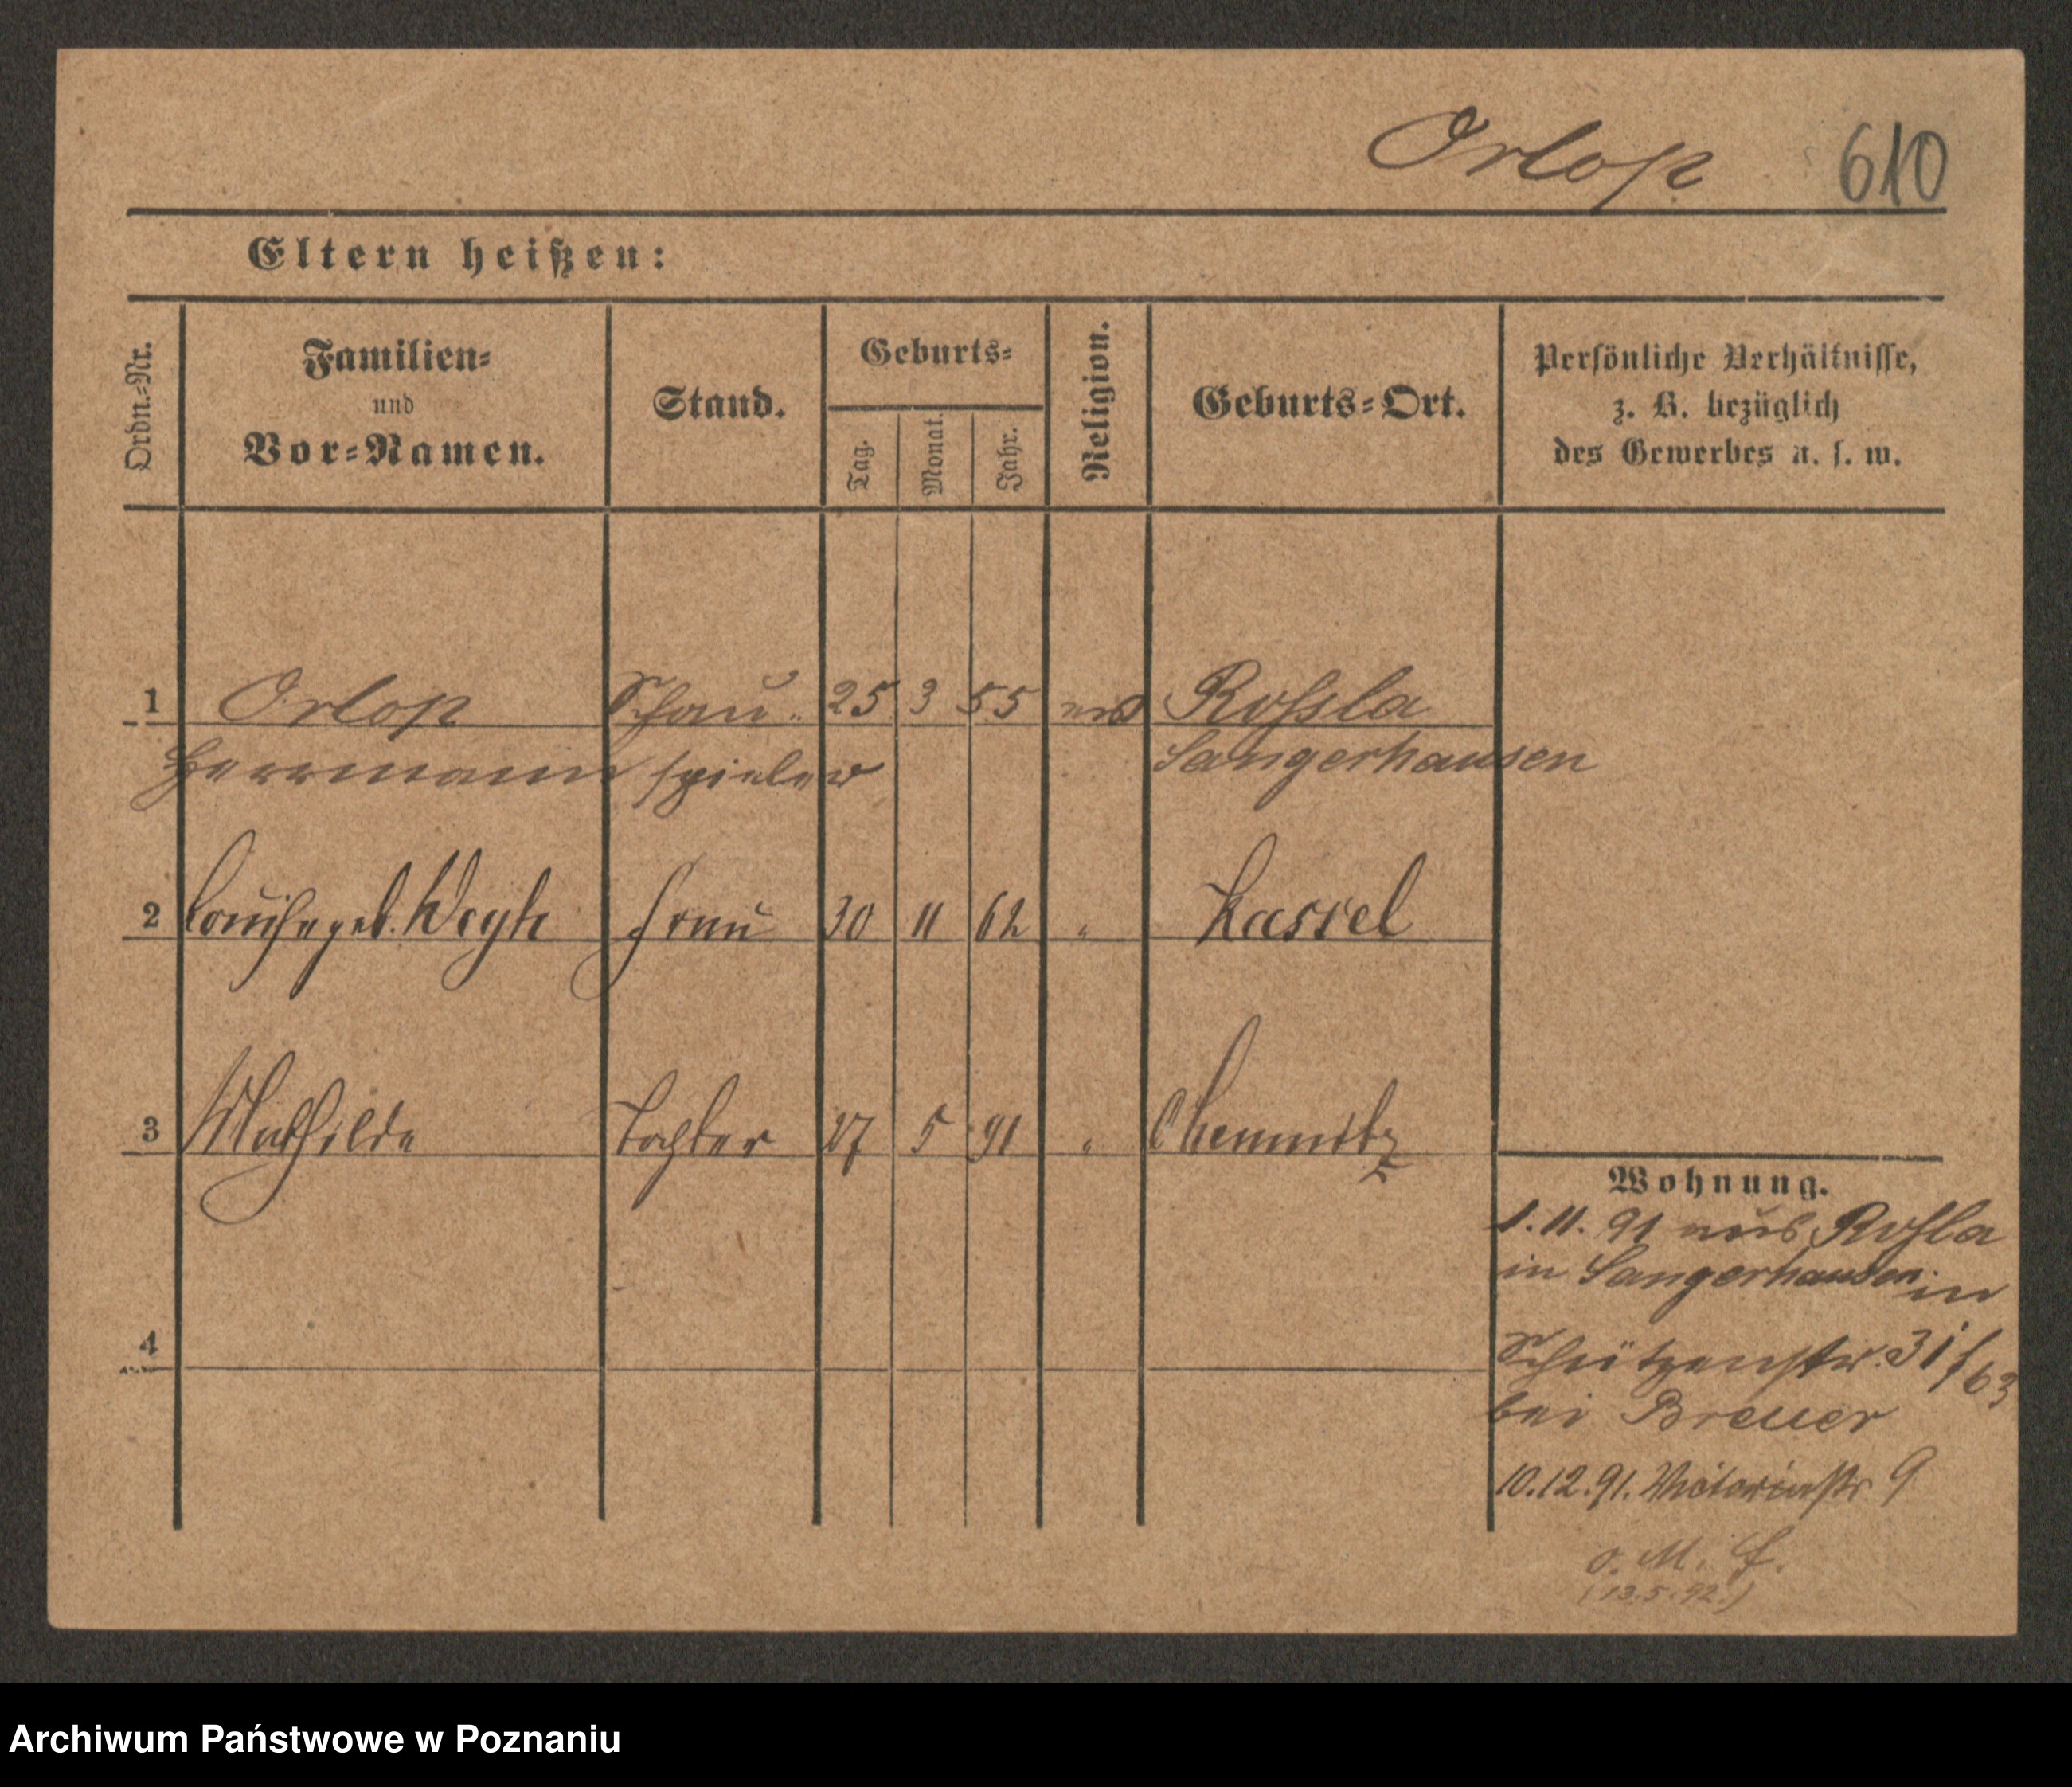 Orlop 610
Eltern heißen:
Ordn.=Nr.
Familien=
und
Vor=Namen.
Stand.
Geburts=
Tag.
Monat.
Jahr.
Religion.
Geburts=Ort.
Persönliche Verhältnisse,
z. B. bezüglich
des Gewerbes u. s. w.
1 Orlop Schau- 25 3 55 Rossla
Herrmann spieler Sangerhausen
2 Louise geb. Frau 30 11 62 " Kassel
3 Mathilde Tochter 27 5 91 " Chemnitz
4
Wohnung.
1. 11. 91 aus Rosla
in Sangerhausen in
Schützenstr. 31/63
bei Breuer
10.12.91. Victoriastr 9
o. M. f.
(13.5.92.)
Archiwum Państwowe w Poznaniu